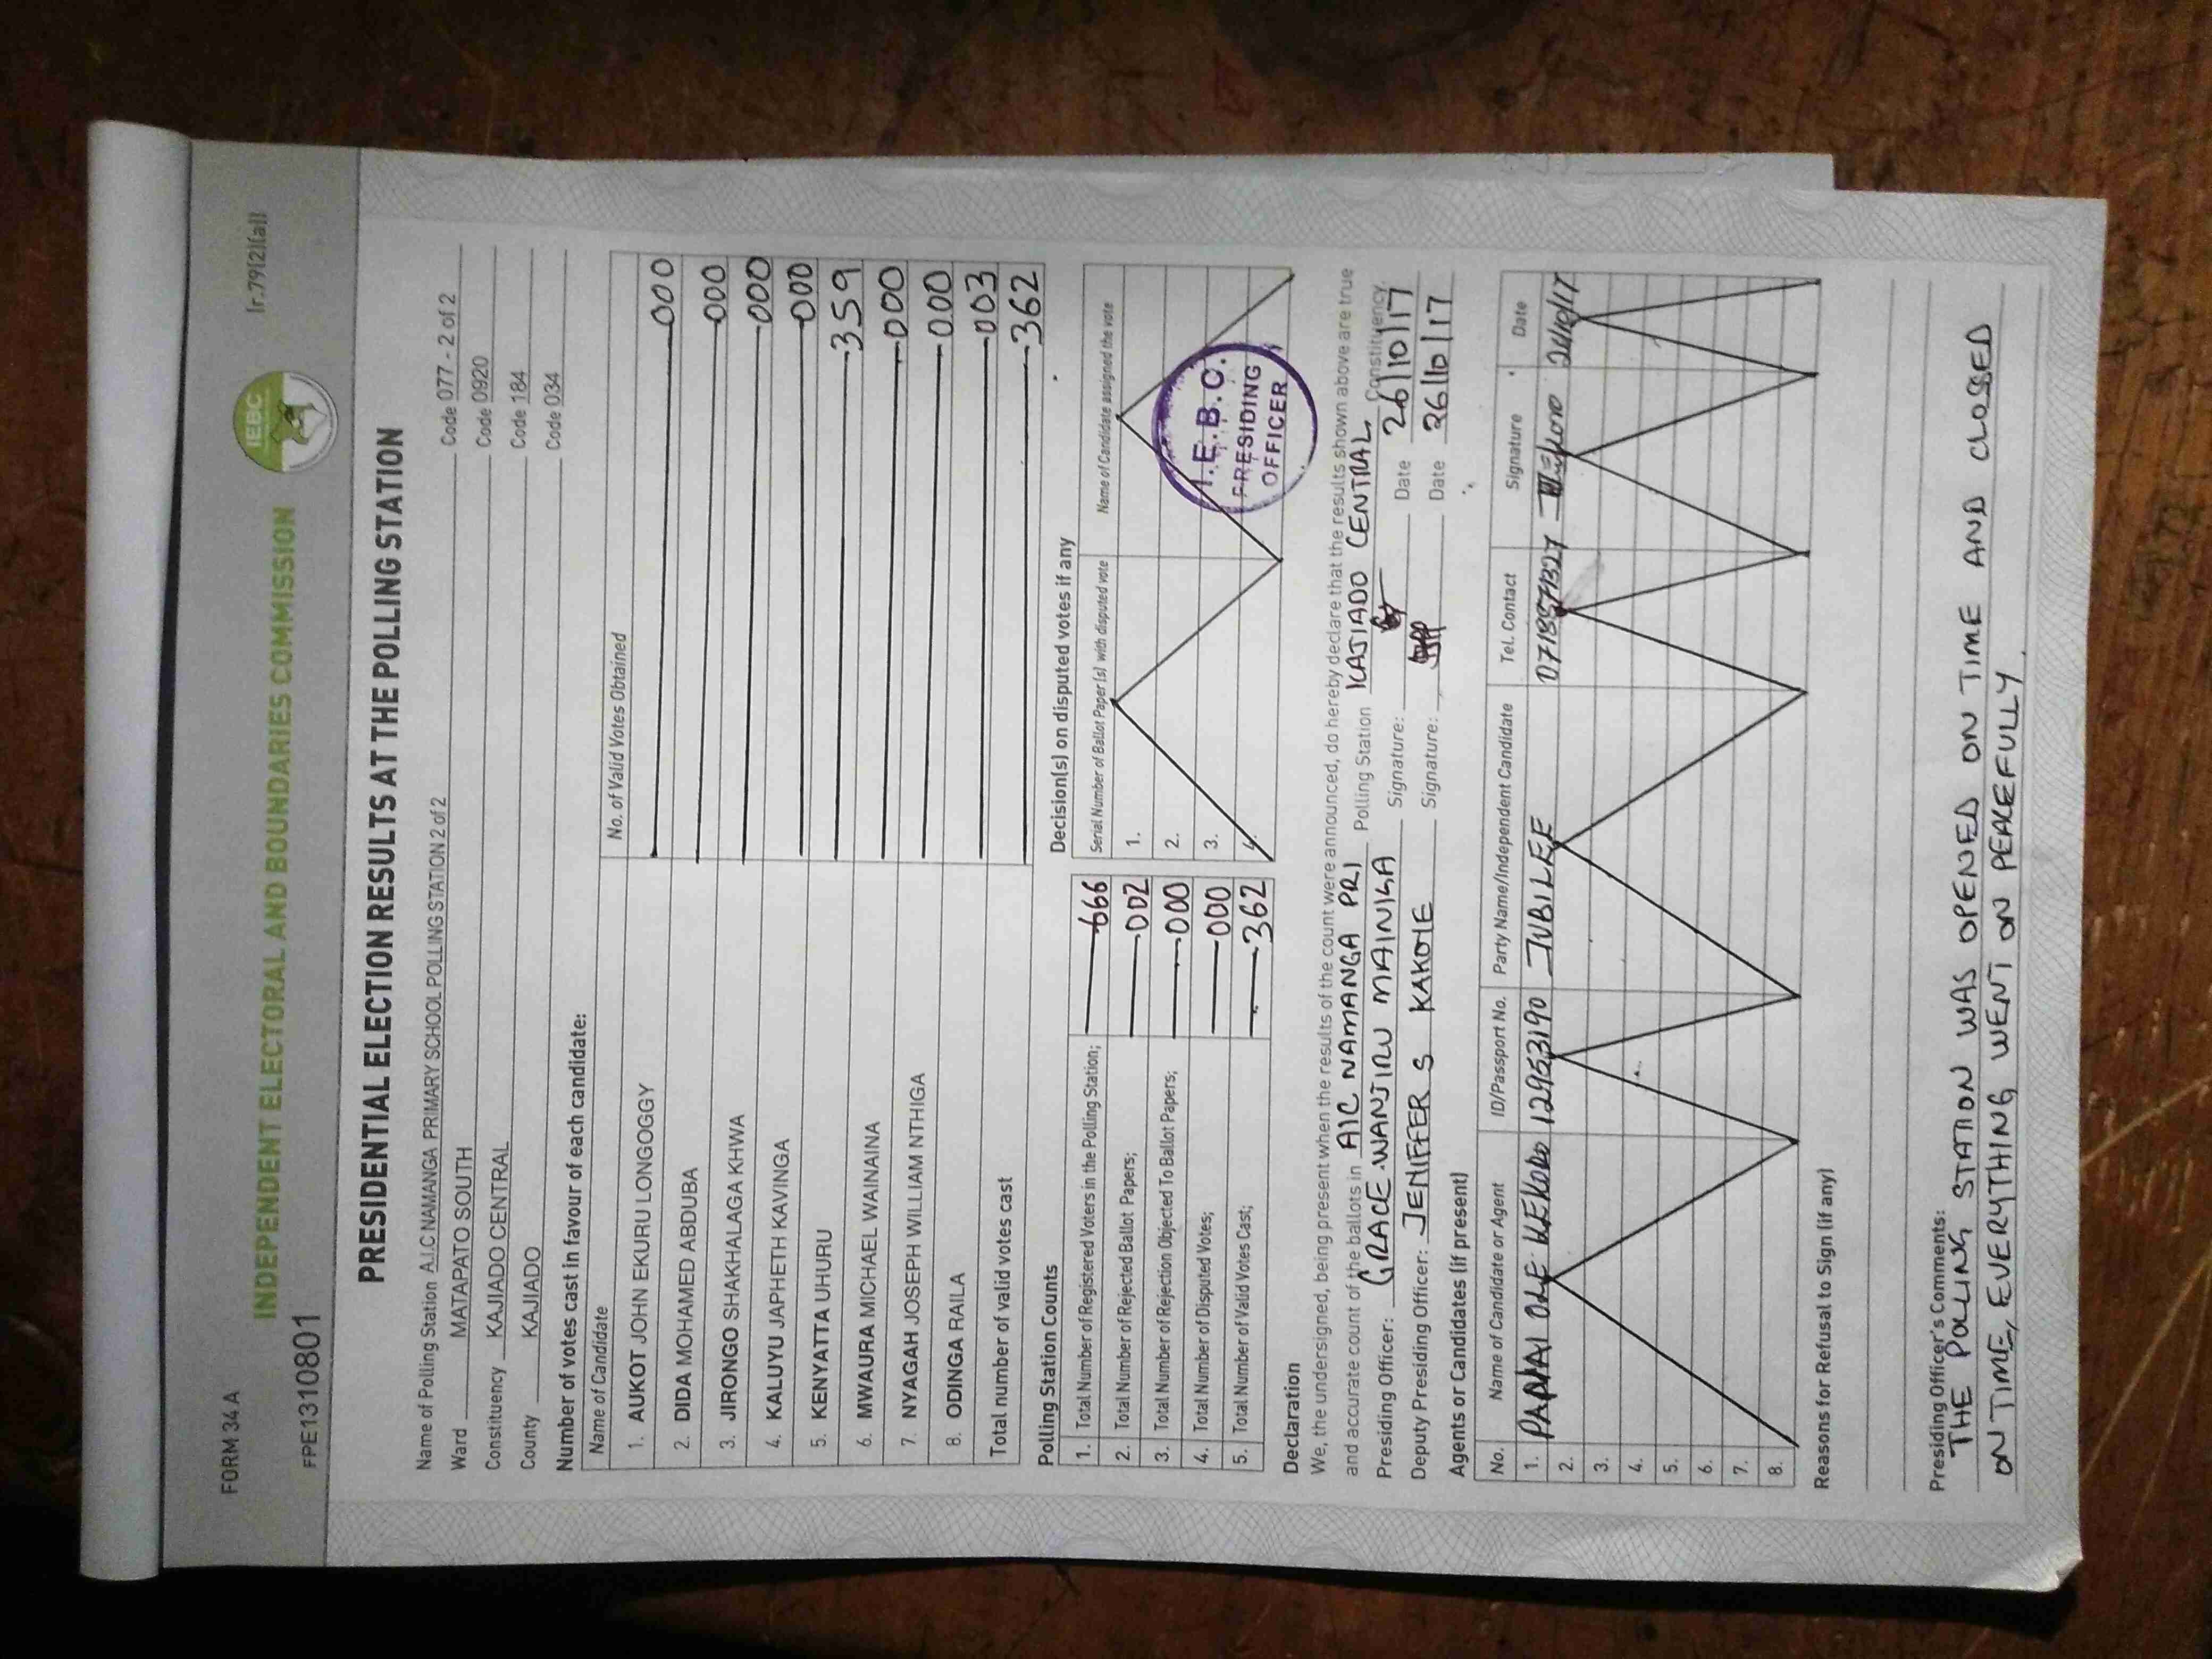 FORM 34 A
INDEPENDENT ELECTORAL AND BOUNDARIES COMMISSION
IEBC
(r.79(2)(a))
FPE1310801
PRESIDENTIAL ELECTION RESULTS AT THE POLLING STATION
Name of Polling Station A.I.C NAMANGA PRIMARY SCHOOL POLLING STATION 2 of 2 Code 077 - 2 of 2
Ward MATAPATO SOUTH Code 0920
Constituency KAJIADO CENTRAL Code 184
County KAJIADO Code 034
Number of votes cast in favour of each candidate:
Name of Candidate No. of Valid Votes Obtained
1. AUKOT JOHN EKURU LONGOGGY 000
2. DIDA MOHAMED ABDUBA 000
3. JIRONGO SHAKHALAGA KHWA 000
4. KALUYU JAPHETH KAVINGA 000
5. KENYATTA UHURU 359
6. MWAURA MICHAEL WAINAINA 000
7. NYAGAH JOSEPH WILLIAM NTHIGA 000
8. ODINGA RAILA 003
Total number of valid votes cast 362
Polling Station Counts
1. Total Number of Registered Voters in the Polling Station; 666
2. Total Number of Rejected Ballot Papers; 002
3. Total Number of Rejection Objected To Ballot Papers; 000
4. Total Number of Disputed Votes; 000
5. Total Number of Valid Votes Cast; 362
Decision(s) on disputed votes if any
Serial Number of Ballot Paper (s) with disputed vote Name of Candidate assigned the vote
1.
2.
3.
4.
I.E.B.C.
PRESIDING
OFFICER
Declaration
We, the undersigned, being present when the results of the count were announced, do hereby declare that the results shown above are true
and accurate count of the ballots in AIC NAMANGA PRI Polling Station KAJIADO CENTRAL Constituency
Presiding Officer: GRACE WANJIRU MAINGA Signature: Date 26/10/17
Deputy Presiding Officer: JENIFFER S KAKOIE Signature: Date 26/10/17
Agents or Candidates (if present)
No. Name of Candidate or Agent ID/Passport No. Party Name/Independent Candidate Tel. Contact Signature Date
1. OLE 12953190 JUBILEE 26/10/17
2.
3.
4.
5.
6.
7.
8.
Reasons for Refusal to Sign (if any)
Presiding Officer's Comments:
THE POLLING STATION WAS OPENED ON TIME AND CLOSED
ON TIME, EVERYTHING WENT ON PEACEFULLY.